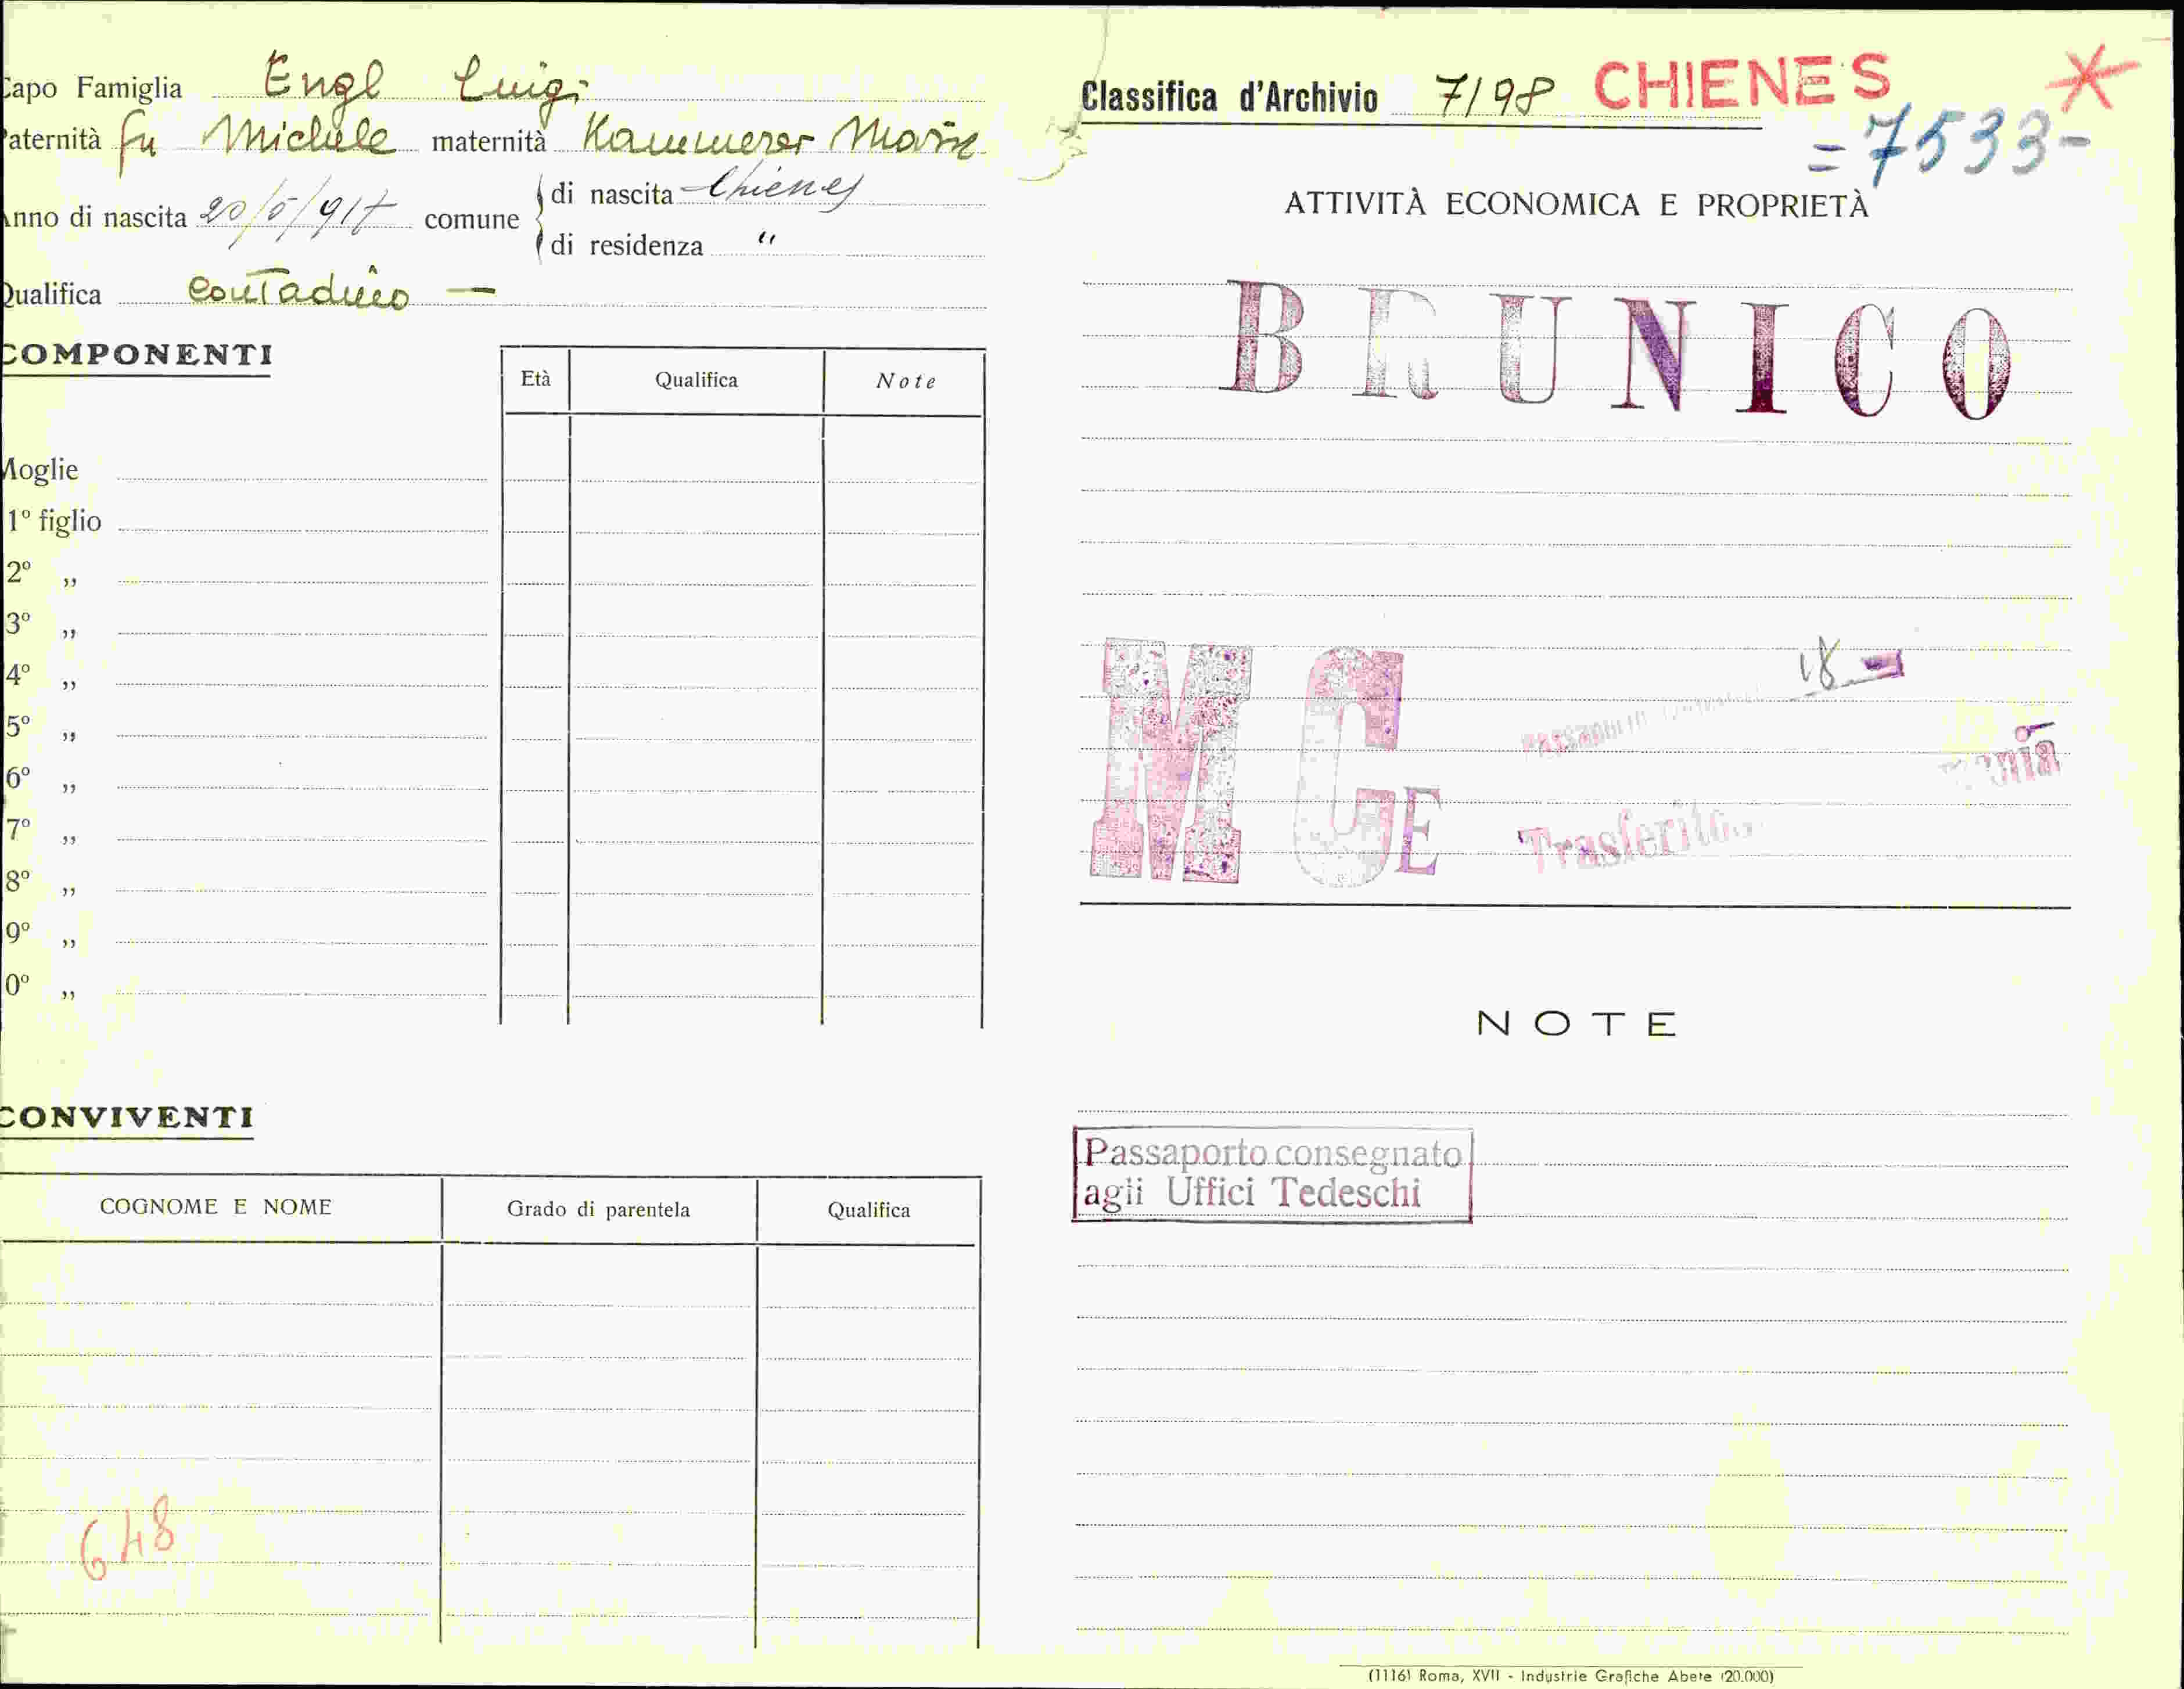 Capo Famiglia Engl Luigi
Paternità fu Michele maternità Kammerer Maria
Anno di nascita 20/5/917 comune
di nascita Chienes
di residenza "
Qualifica contadino —
COMPONENTI
Età Qualifica Note
Moglie
1º figlio
2º „
3º „
4º „
5º „
6º „
7º „
8º „
9º „
0º „
CONVIVENTI
COGNOME E NOME Grado di parentela Qualifica
648
Classifica d'Archivio 7/98 CHIENES
=7533-
ATTIVITÀ ECONOMICA E PROPRIETÀ
BRUNICO
18
MGE
Trasferito
NOTE
Passaporto consegnato
agli Uffici Tedeschi
(1116) Roma, XVII - Industrie Grafiche Abete (20.000)